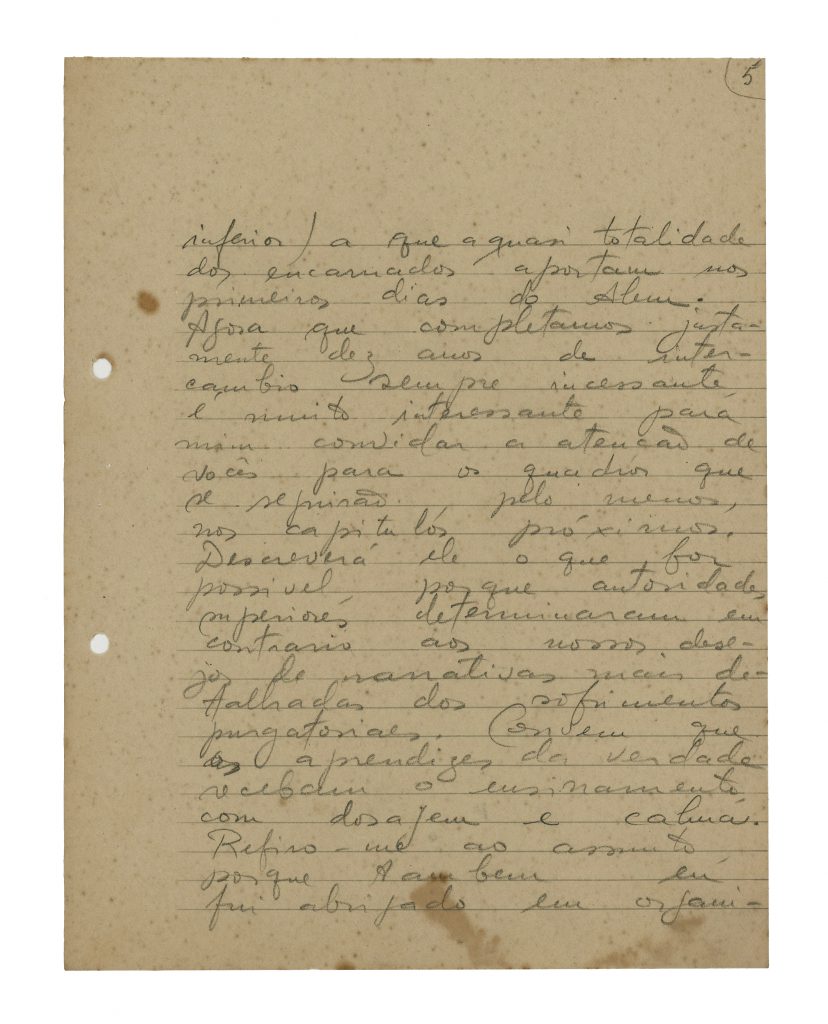 5
inferior) a que a quasi totalidade
dos encarnados aportam nos
primeiros dias do Alem.
Agora que completamos justa-
mente dez anos de inter-
cambio sempre incessante
é muito interessante para
mim convidar a atenção de
vocês para os quadros que
se seguirão, pelo menos,
nos capitulós próximos.
Descreverá ele o que for
possivel, porque autoridades
superiores determinaram em
contrario aos nossos dese-
jos de narrativas mais de-
talhadas dos sofrimentos
purgatoriaes. Convem que
os aprendizes da verdade
recebam o ensinamento
com dosagem e calma.
Refiro-me ao assunto
porque tambem eu
fui abrigado em organi-